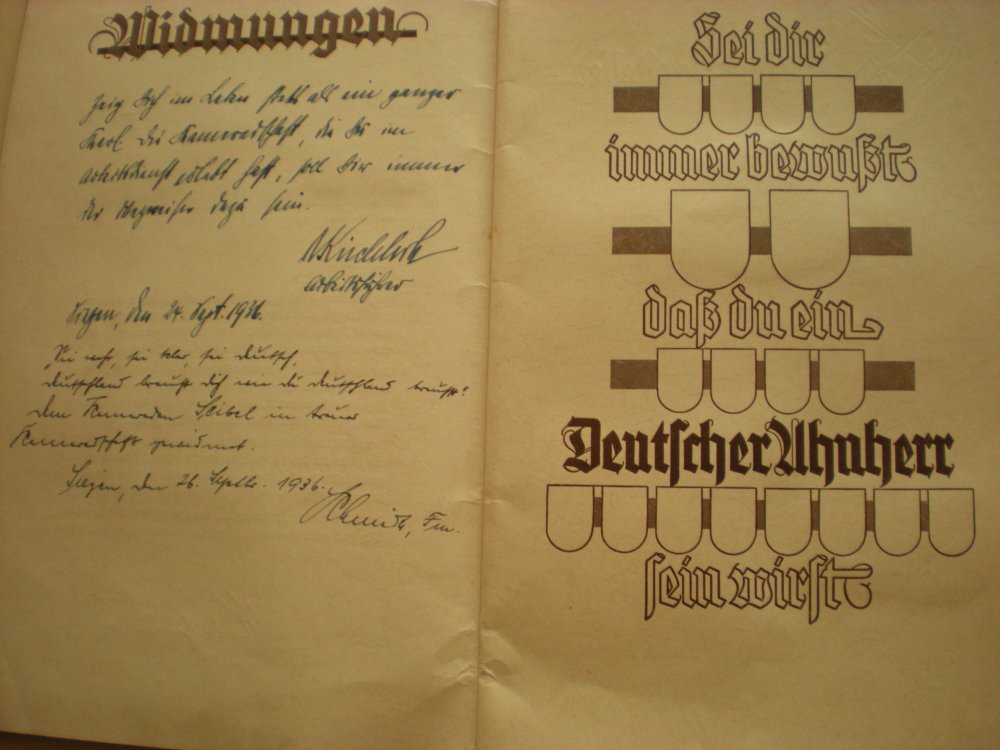 Widmungen
Zeig Dich im Leben stets als ein ganzer
Kerl. Die Kameradschaft, die Du im
Arbeitsdienst erlebt hast, soll Dir immer
der Wegweiser dazu sein.
Arbeitsführer
Siegen, den 24. Sept. 1936.
"Sei wahr, sei klar, sei deutsch,
Deutschland braucht dich wie du Deutschland brauchst!"
Dem Kameraden Seibel in treuer
Kameradschaft gewidmet.
Siegen, den 26. Septbr. 1936.
Schmidt, Fm.
Sei dir
immer bewußt
daß du ein
Deutscher Ahnherr
sein wirst